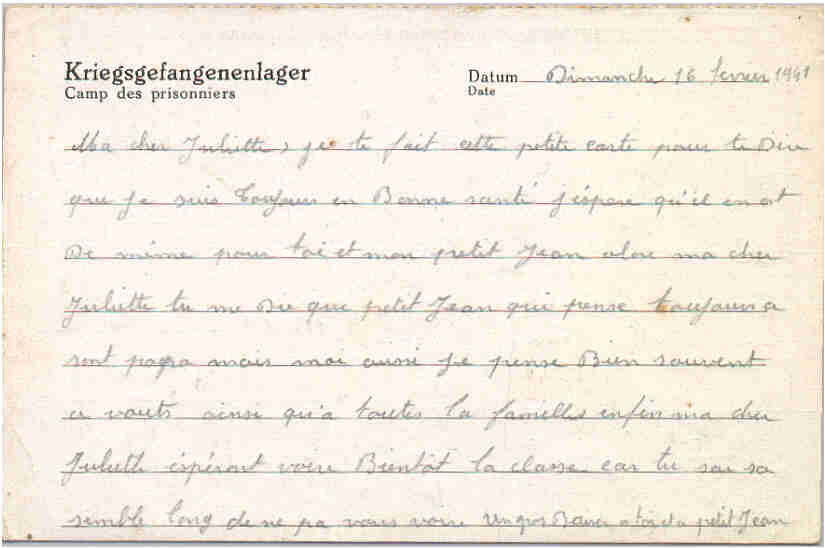 Kriegsgefangenenlager
Camp des prisonniers
Datum Dimanche 16 fevrier 1941
Date
Ma cher Juliette, je te fait cette petite carte pour te Dire
que je suis toujours en Bonne santé j'éspere qu'il en est
De même pour toi et mon petit Jean alors ma cher
Juliette tu me Die que petit Jean qui pense toujours a
sont papa mais moi aussi je pense Bien souvent
a vouts ainsi qu'a toutes la familles enfin ma cher
Juliette éspérant voire Bientôt la classe car tu sai sa
semble long de ne pa vous voire un gros Baiser a toi et a petit Jean